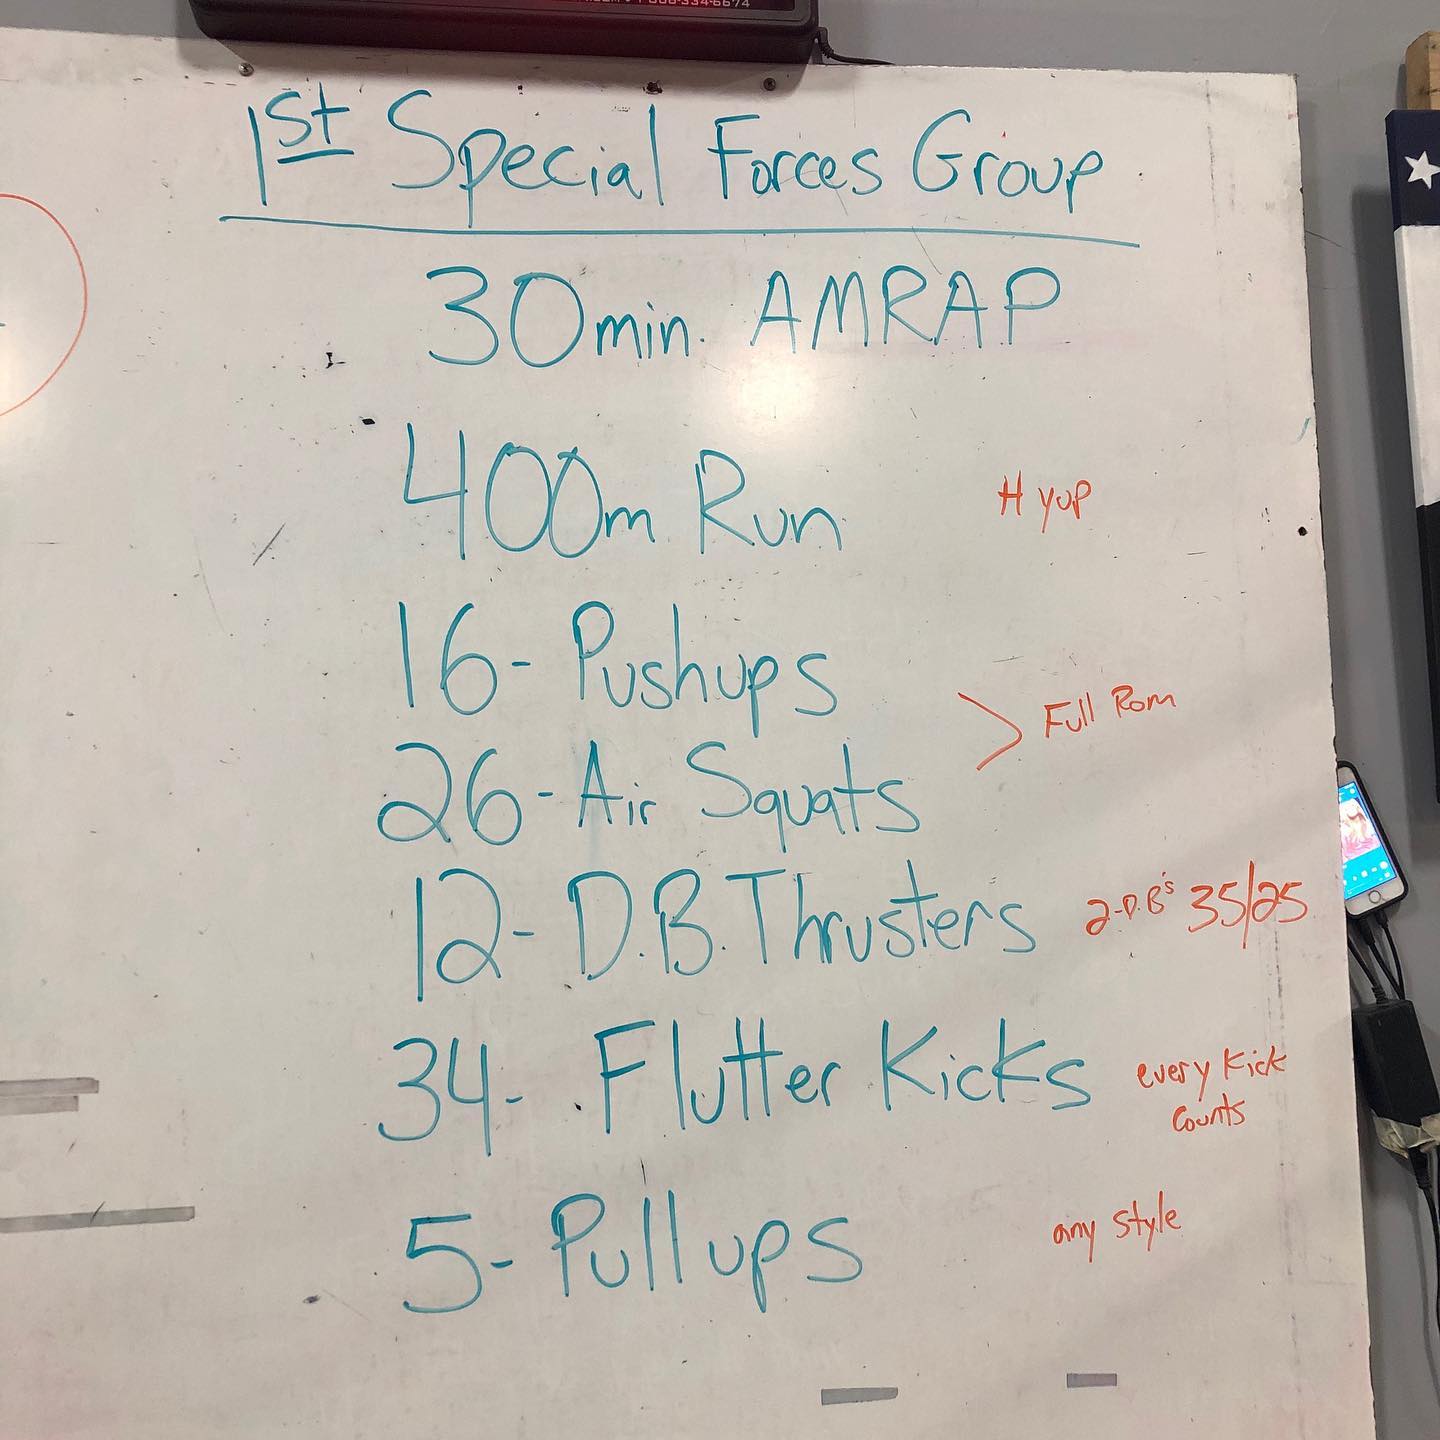 1-800-334-6674
1st Special Forces Group
30min. AMRAP
400m Run H yup
16- Pushups
Full Rom
26- Air Squats
12- D.B. Thrusters 2-D.B's 35/25
34- Flutter Kicks every Kick
Counts
5- Pullups any style